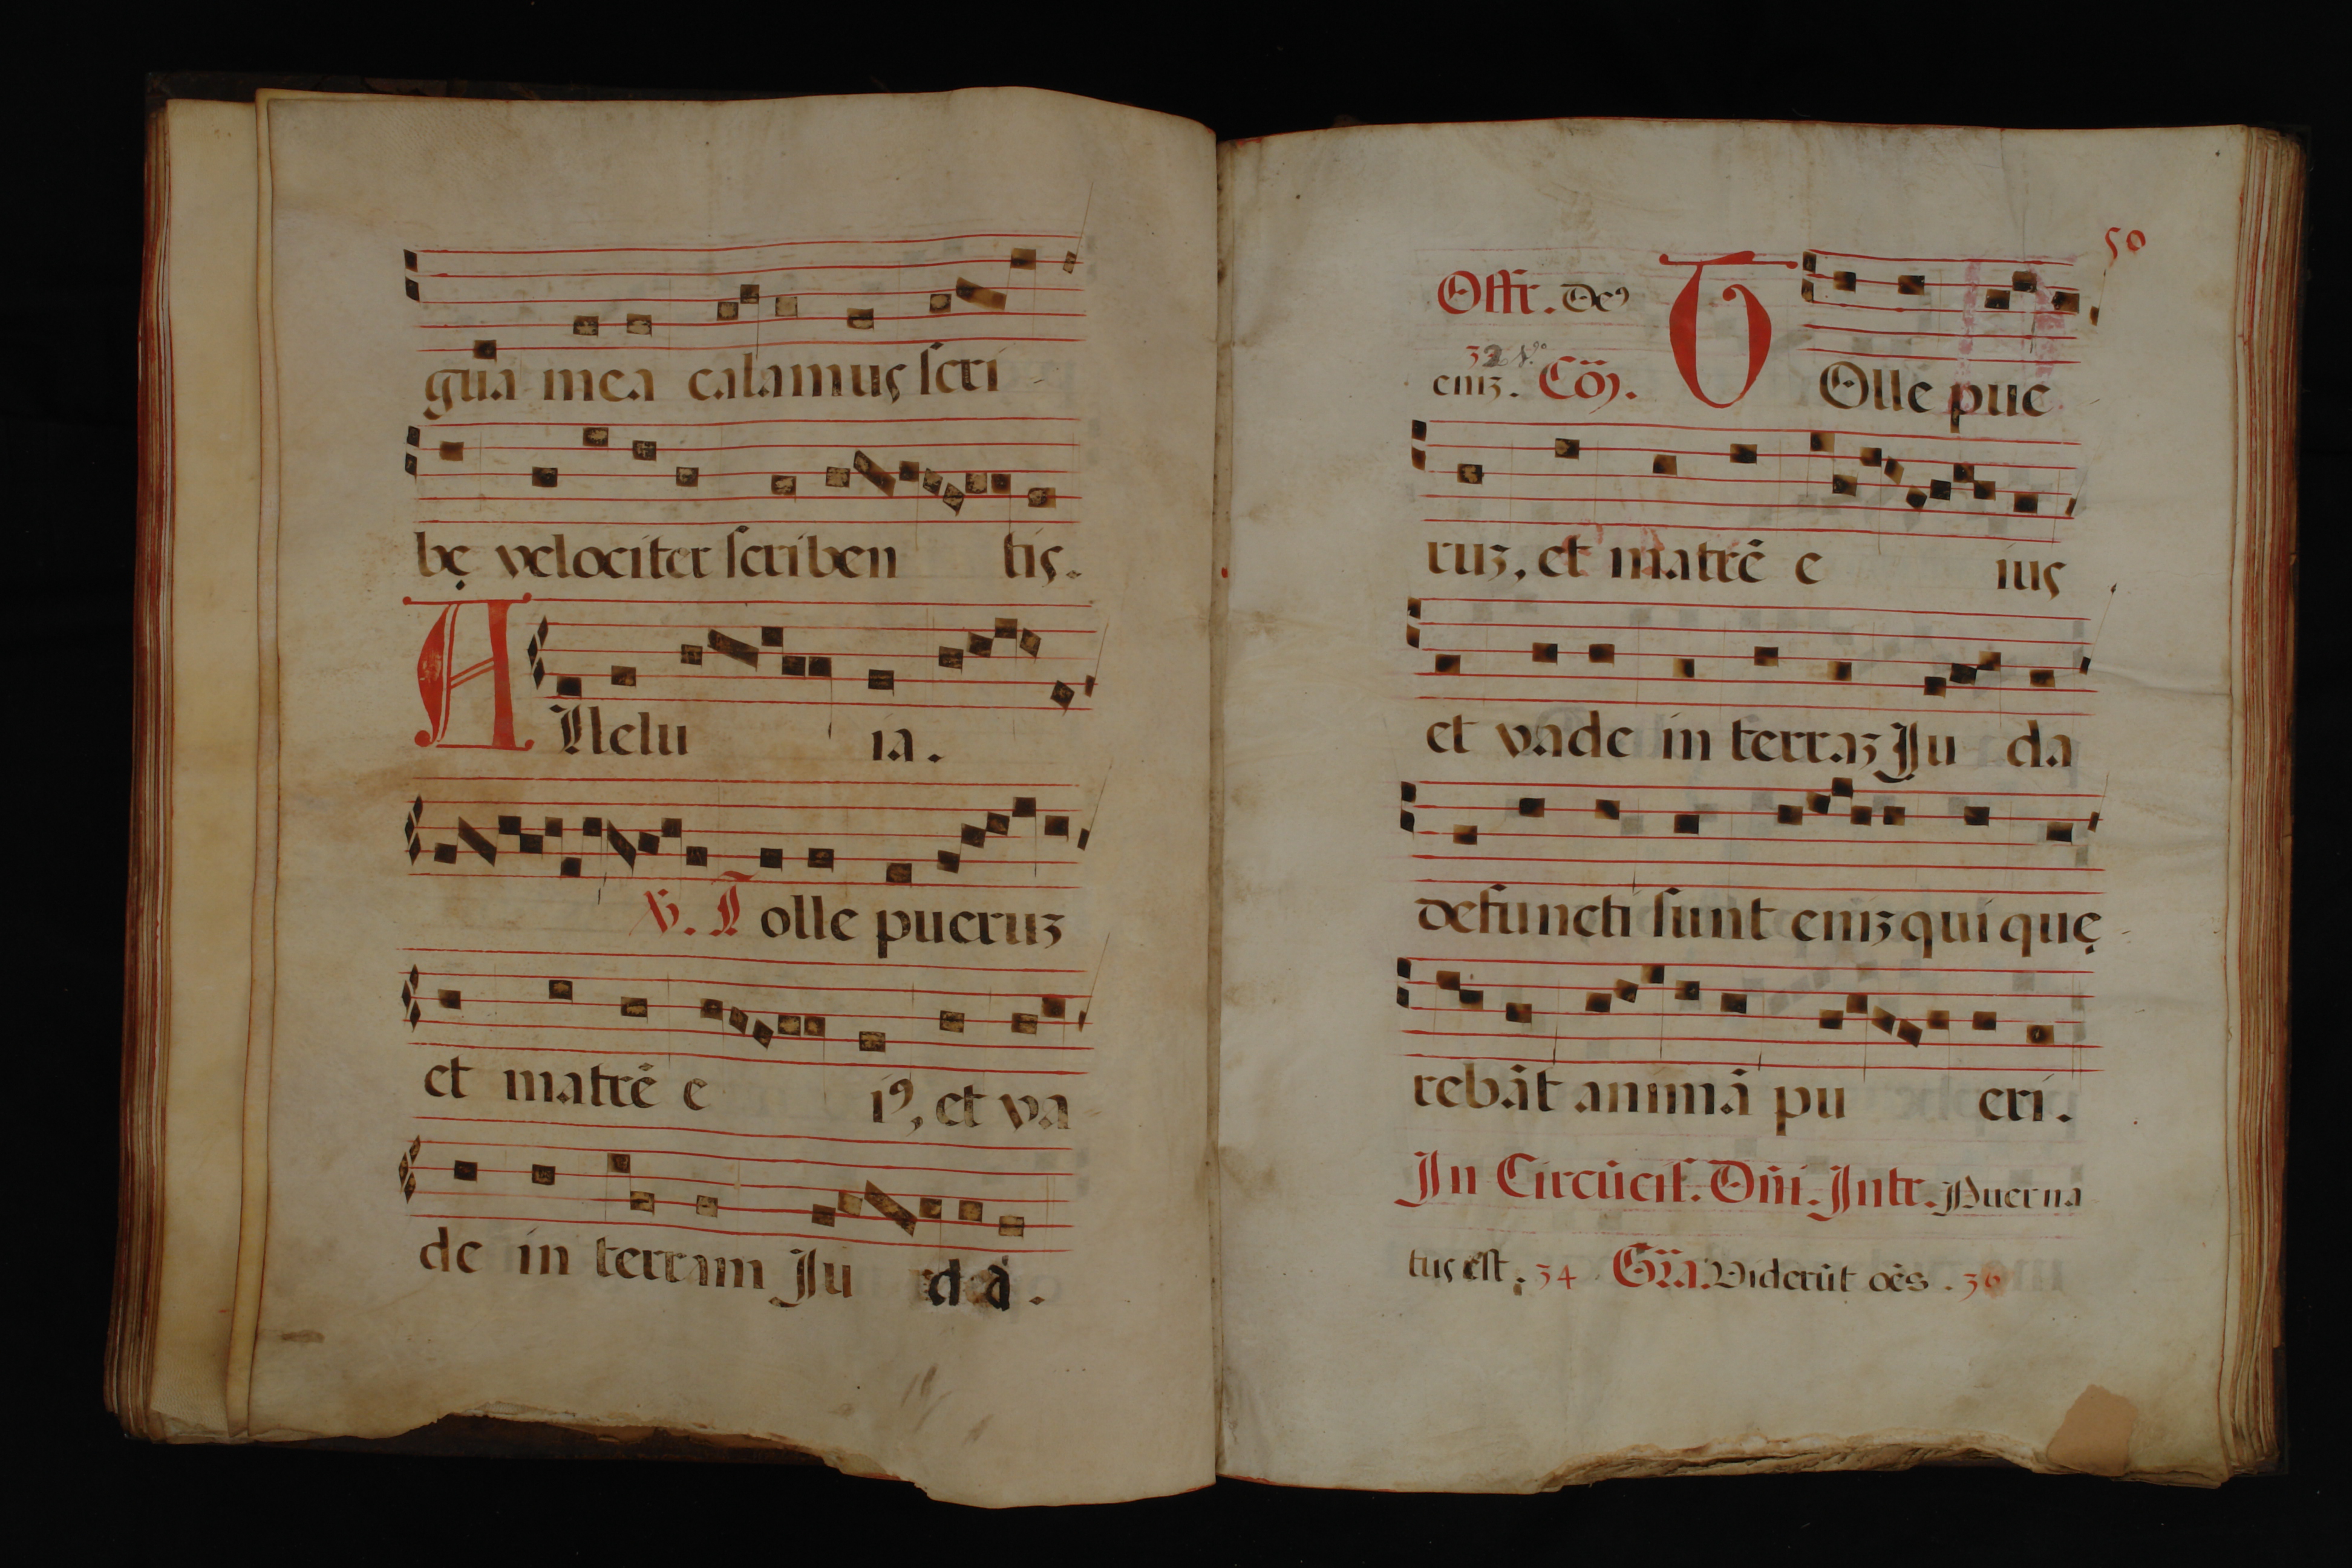 gua mea calamus scri
bę velociter scriben tis.
Allelu ia.
℣. Tolle pueruꝫ
et matrē e iꝰ, et va
de in terram Ju da.
50
Offr. Deꝰ TOlle pue
32 v.º
eniꝫ. Cõ.
ruꝫ, et matrē e ius
et vade in terraꝫ Ju da
defuncti sunt eniꝫ qui quę
rebāt animā pu eri.
In Circūcis. Dñi. Intr. Puer na
tus est. 34 Gra. Viderūt oēs. 36